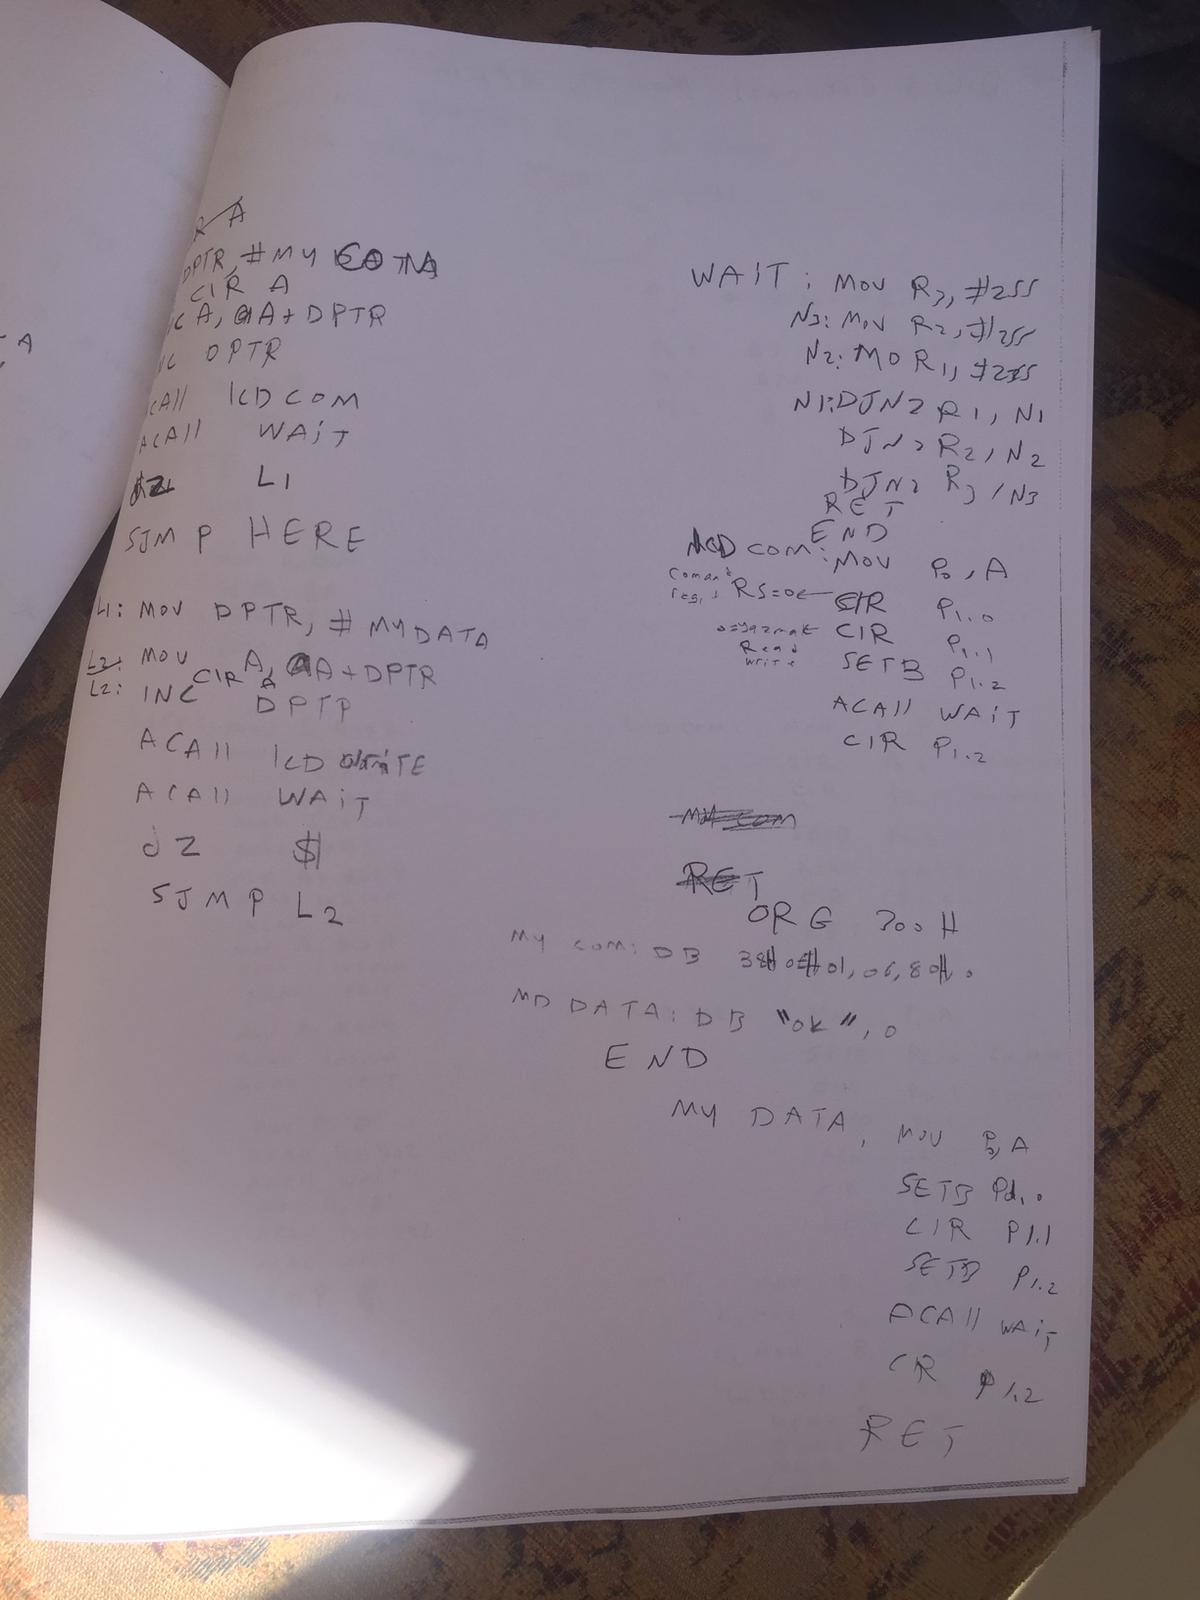 R A
DPTR, #MY COM
CLR A
C A, @A+DPTR
NC DPTR
CAll lCD COM
ACAll WAiT
JZ L1
SJMP HERE
L1: MOV DPTR, #MYDATA
L2: MOV A, @A+DPTR
CLR A
L2: INC DPTR
ACAll lCD WRiTE
ACAll WAiT
JZ $
SJMP L2
A
WAIT: MOV R3, #255
N3: MOV R2, #255
N2: MO R1, #255
N1: DJNZ R1, N1
DJNZ R2, N2
DJNZ R3, N3
RET
END
LCD COM: MOV P0, A
RS=0 ClR P1.0
0=yazmak ClR P1.1
Read
write
SETB P1.2
ACAll WAiT
ClR P1.2
MY COM
RET
ORG 300H
MY COM: DB 38H 0EH 01, 06, 80H.
MD DATA: DB "OK", 0
END
MY DATA, MOV P0, A
SETB P1.0
ClR P1.1
SETB P1.2
ACAll WAiT
CR P1.2
RET